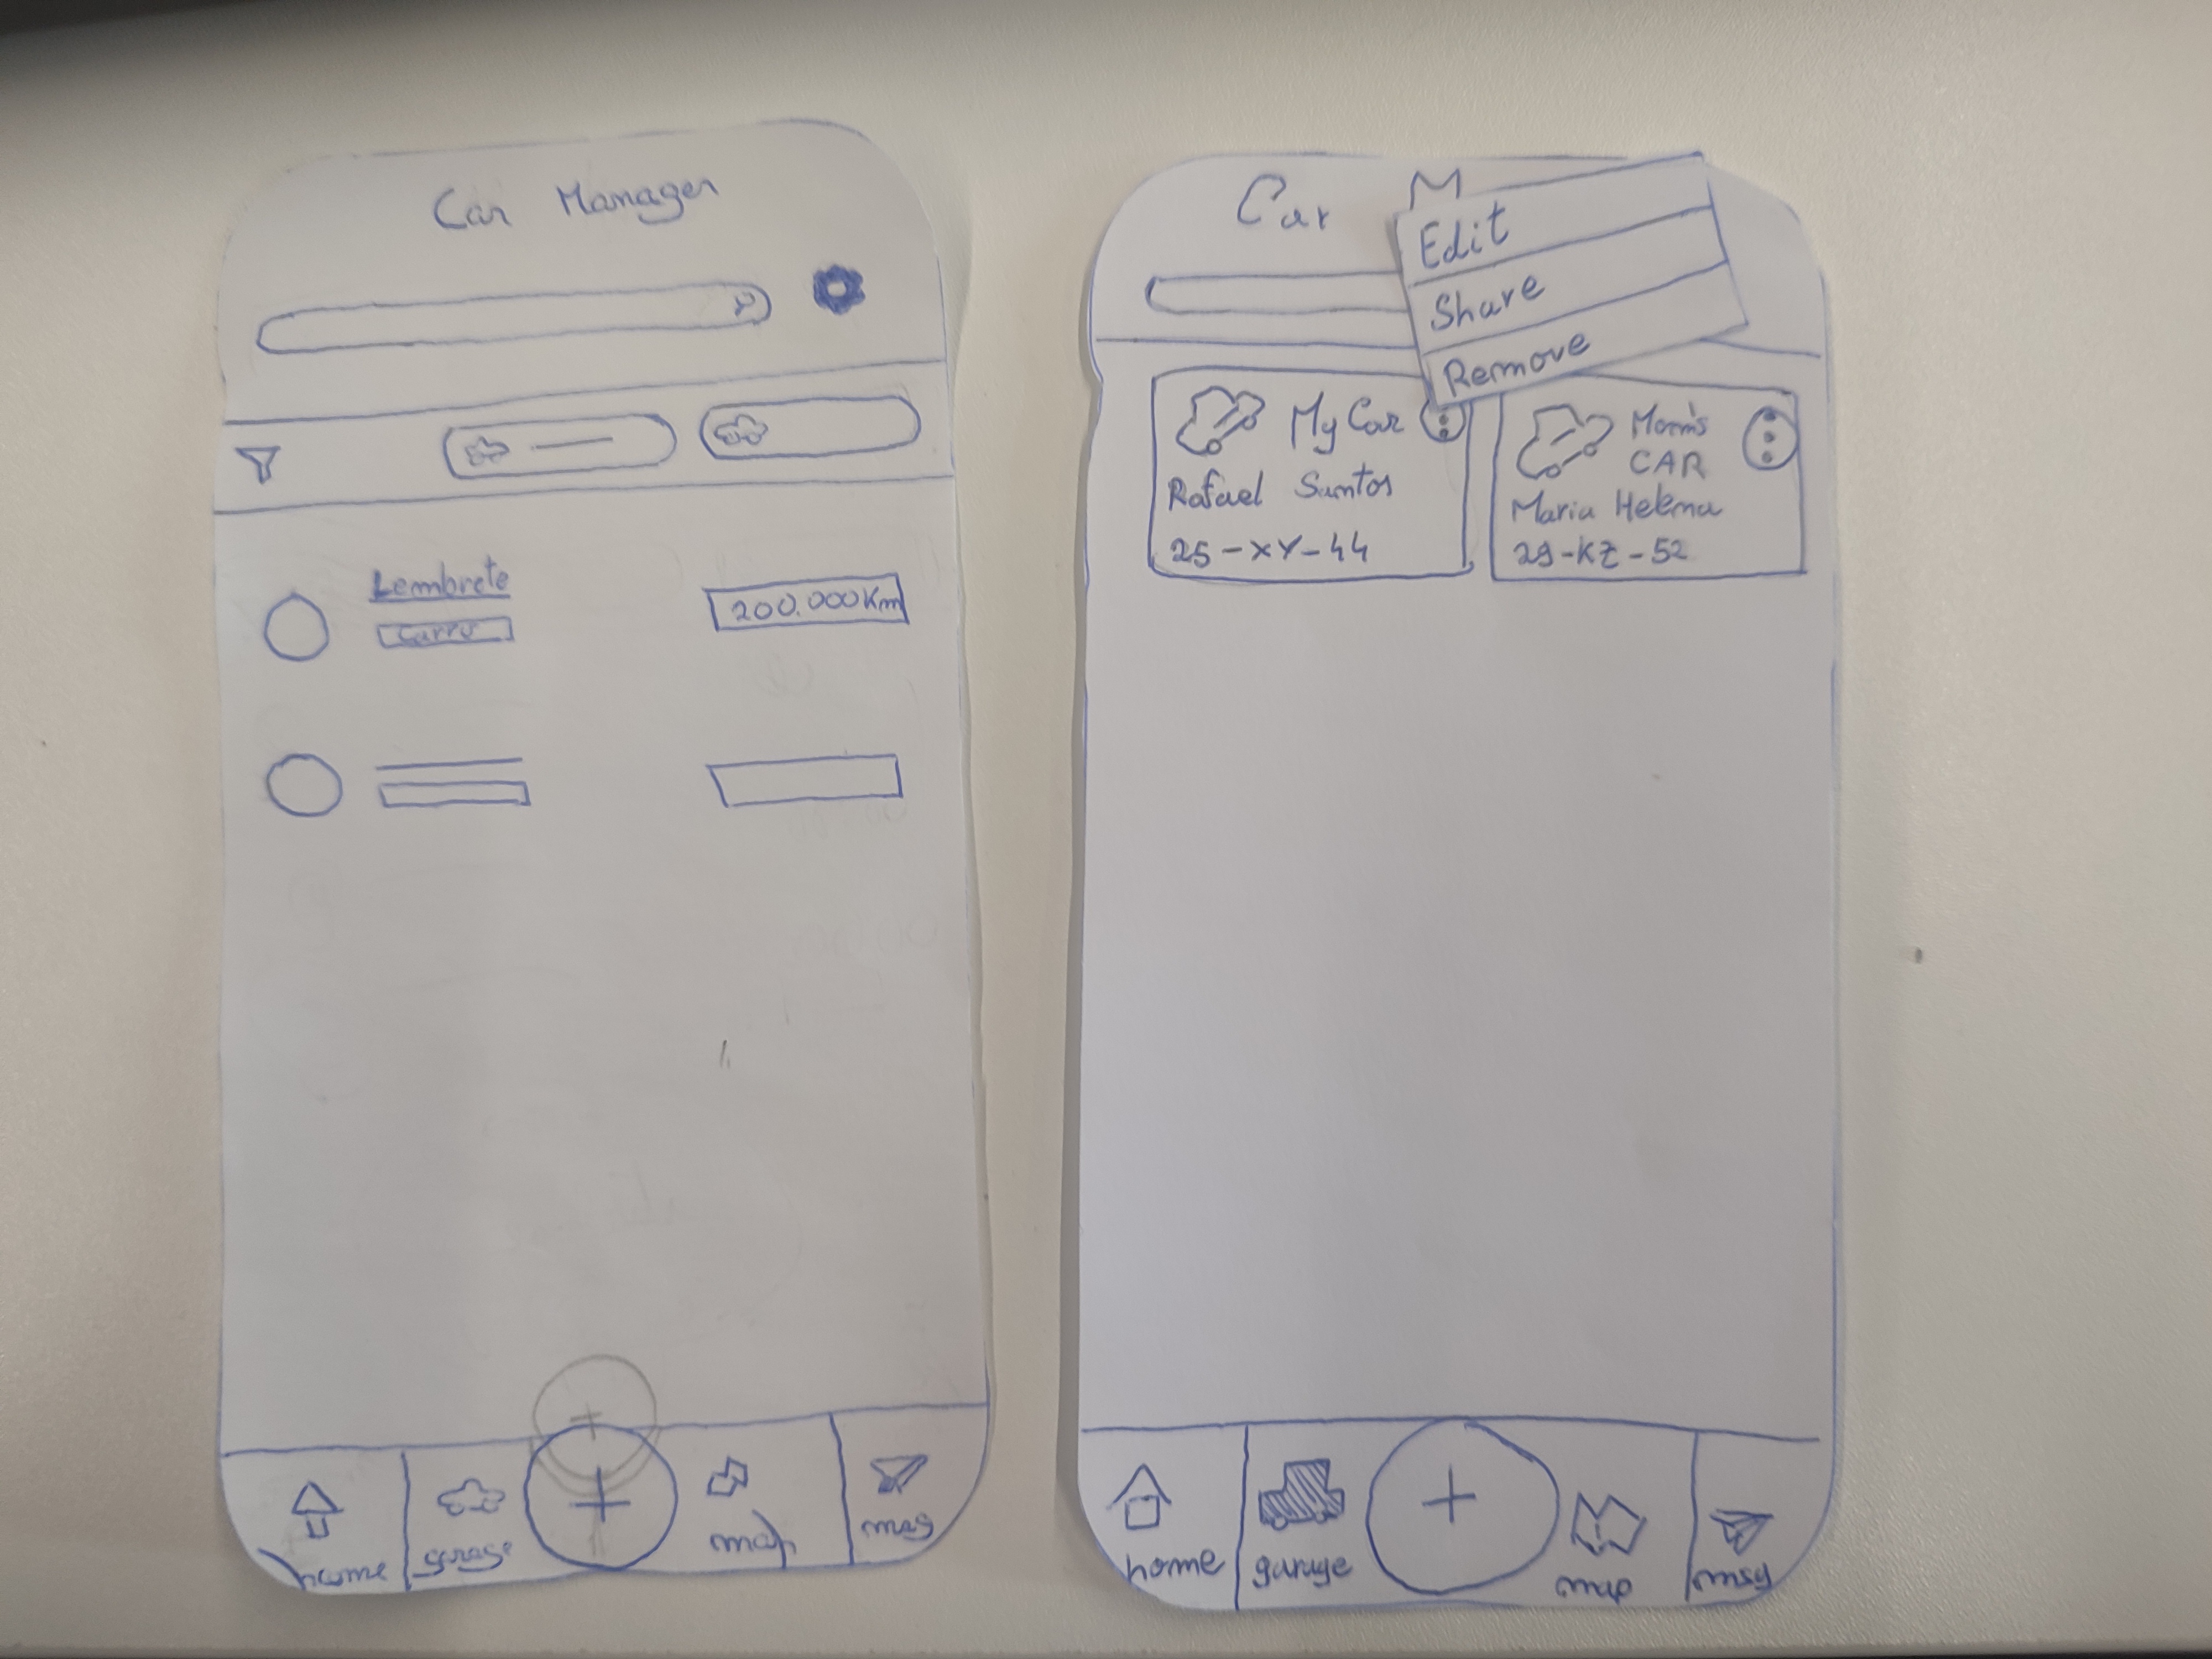 Car Manager
Lembrete
Carro
200.000Km
home
garage
+
map
msg
Car M
Edit
Share
Remove
My Car
Rafael Santos
25-XY-44
Mom's
CAR
Maria Helena
29-KZ-52
home
garage
+
map
msg